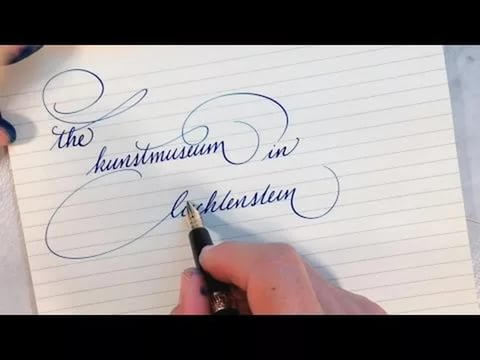 the
kunstmuseum in
liechtenstein